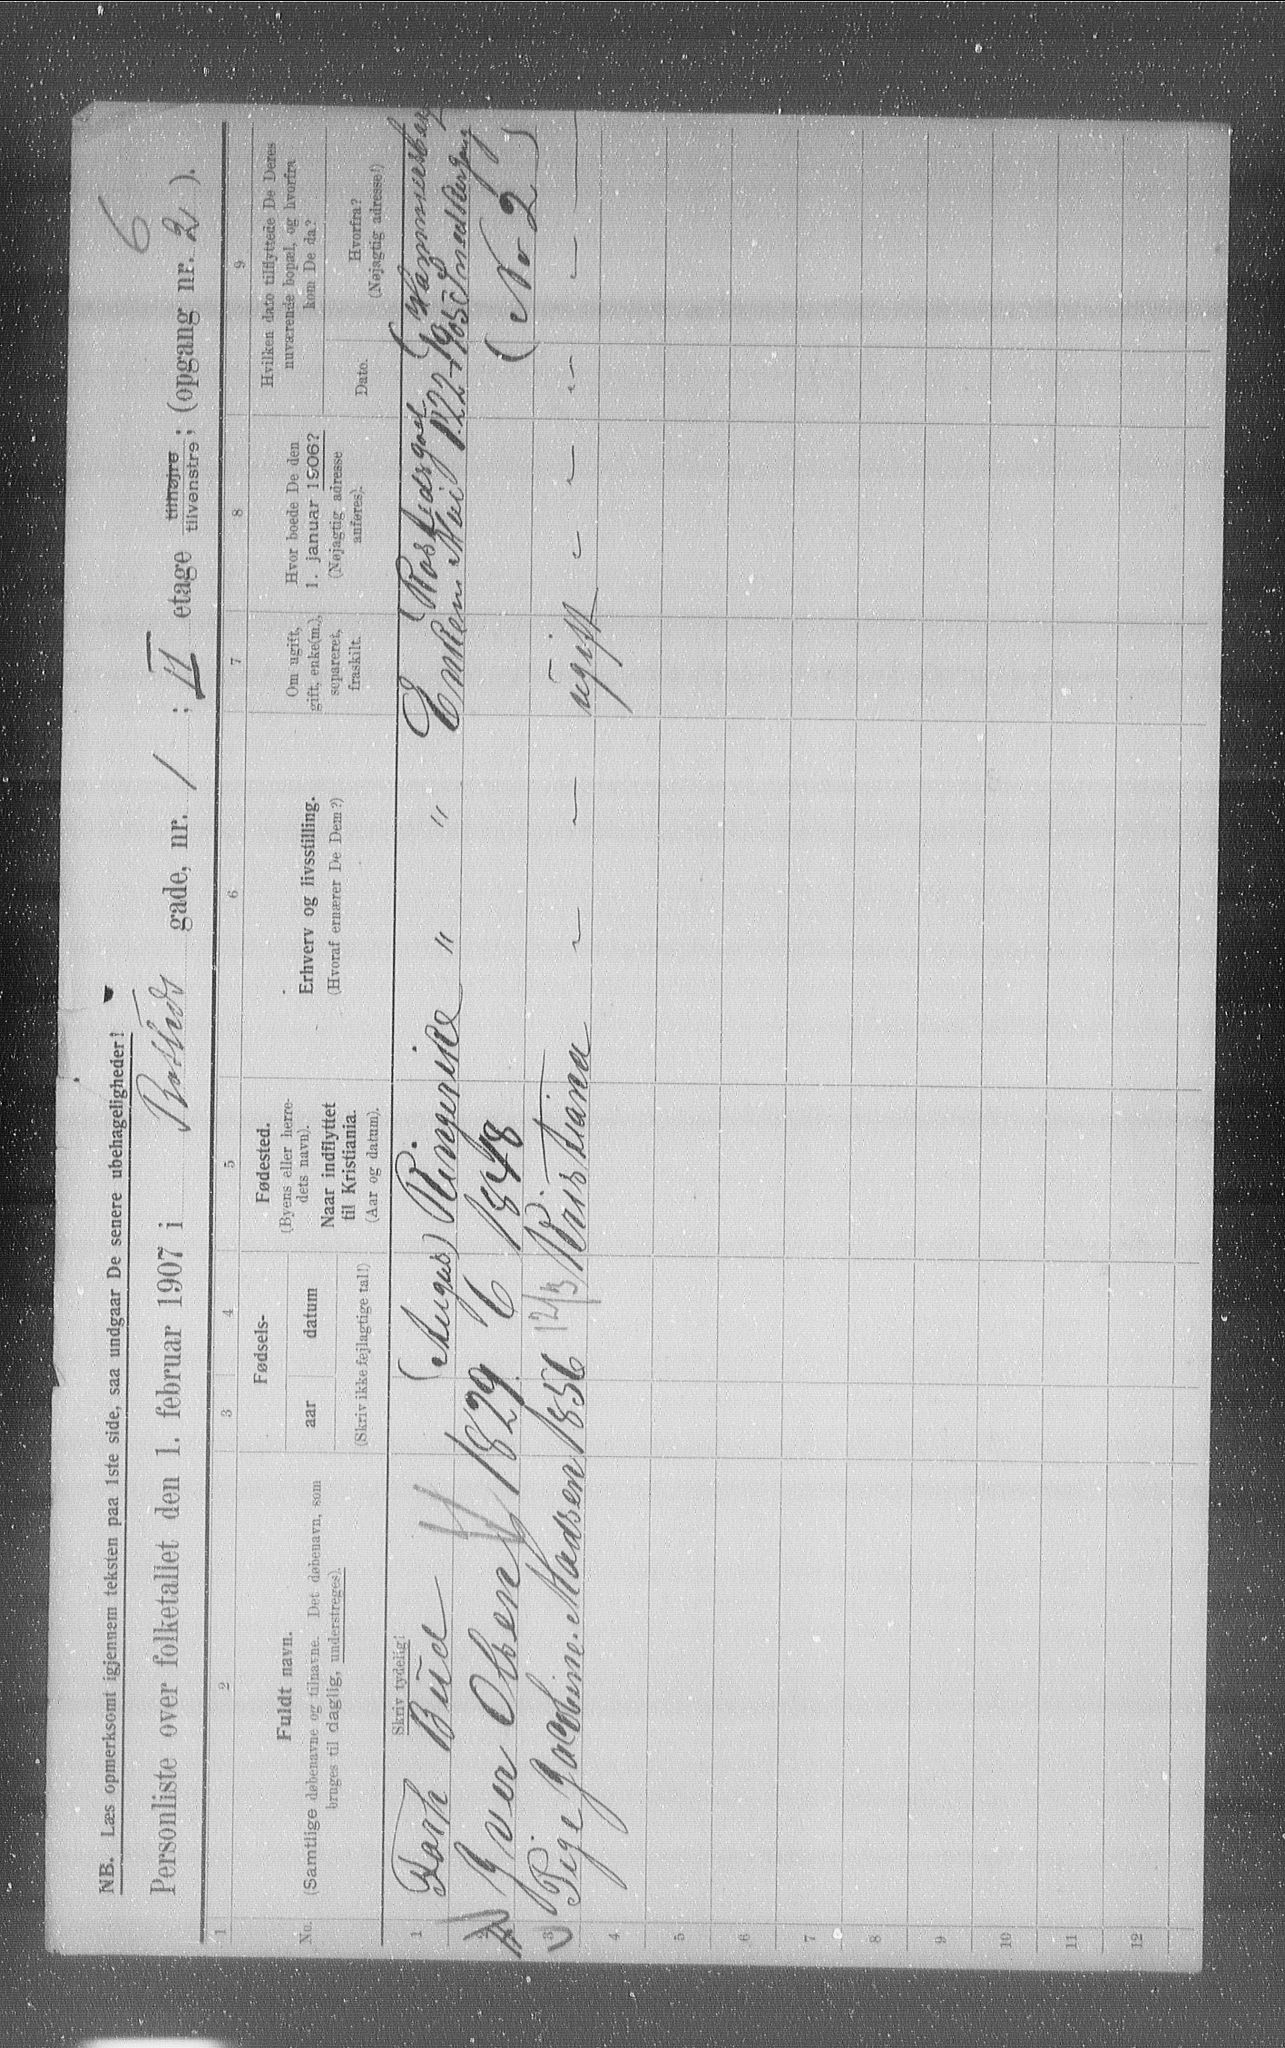 6
NB. Læs opmerksomt igjennem teksten paa 1ste side, saa undgaar De senere ubehageligheder!
Personliste over folketallet den 1. februar 1907 i Rosteds gade, nr. 1; II etage tilhøjre tilvenstre; (opgang nr. 2).
1 2 3 4 5 6 7 8 9
No.
Fuldt navn.
(Samtlige døbenavne og tilnavne. Det døbenavn, som
bruges til daglig, understreges).
Skriv tydelig!
Fødsels-
aar
datum
(Skriv ikke fejlagtige tal!)
Fødested.
(Byens eller herre-
dets navn).
Naar indflyttet
til Kristiania.
(Aar og datum).
Erhverv og livsstilling.
(Hvoraf ernærer De Dem?)
Om ugift,
gift, enke(m.),
separeret,
fraskilt.
Hvor boede De den
1. januar 1906?
(Nøjagtig adresse
anføres).
Hvilken dato tilflyttede De Deres
nuværende bopæl, og hvorfra
kom De da?
Dato.
Hvorfra?
(Nøjagtig adresse!)
1 Bud (August) Ringerike " " E (Rostedsgad (Hammersborg
2 Iver Olsen 1829 6 1848 Enkem Mai 1905
(No 2)
3 Pige Jacobine Madsen 1856 12/3 Kristiania — — ugift — — — —
4
5
6
7
8
9
10
11
12